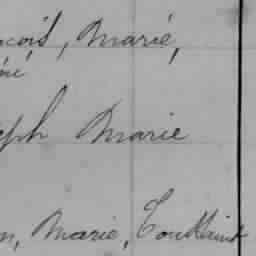 çois, Marie,
né
eph Marie
n, Marie, Toussaint